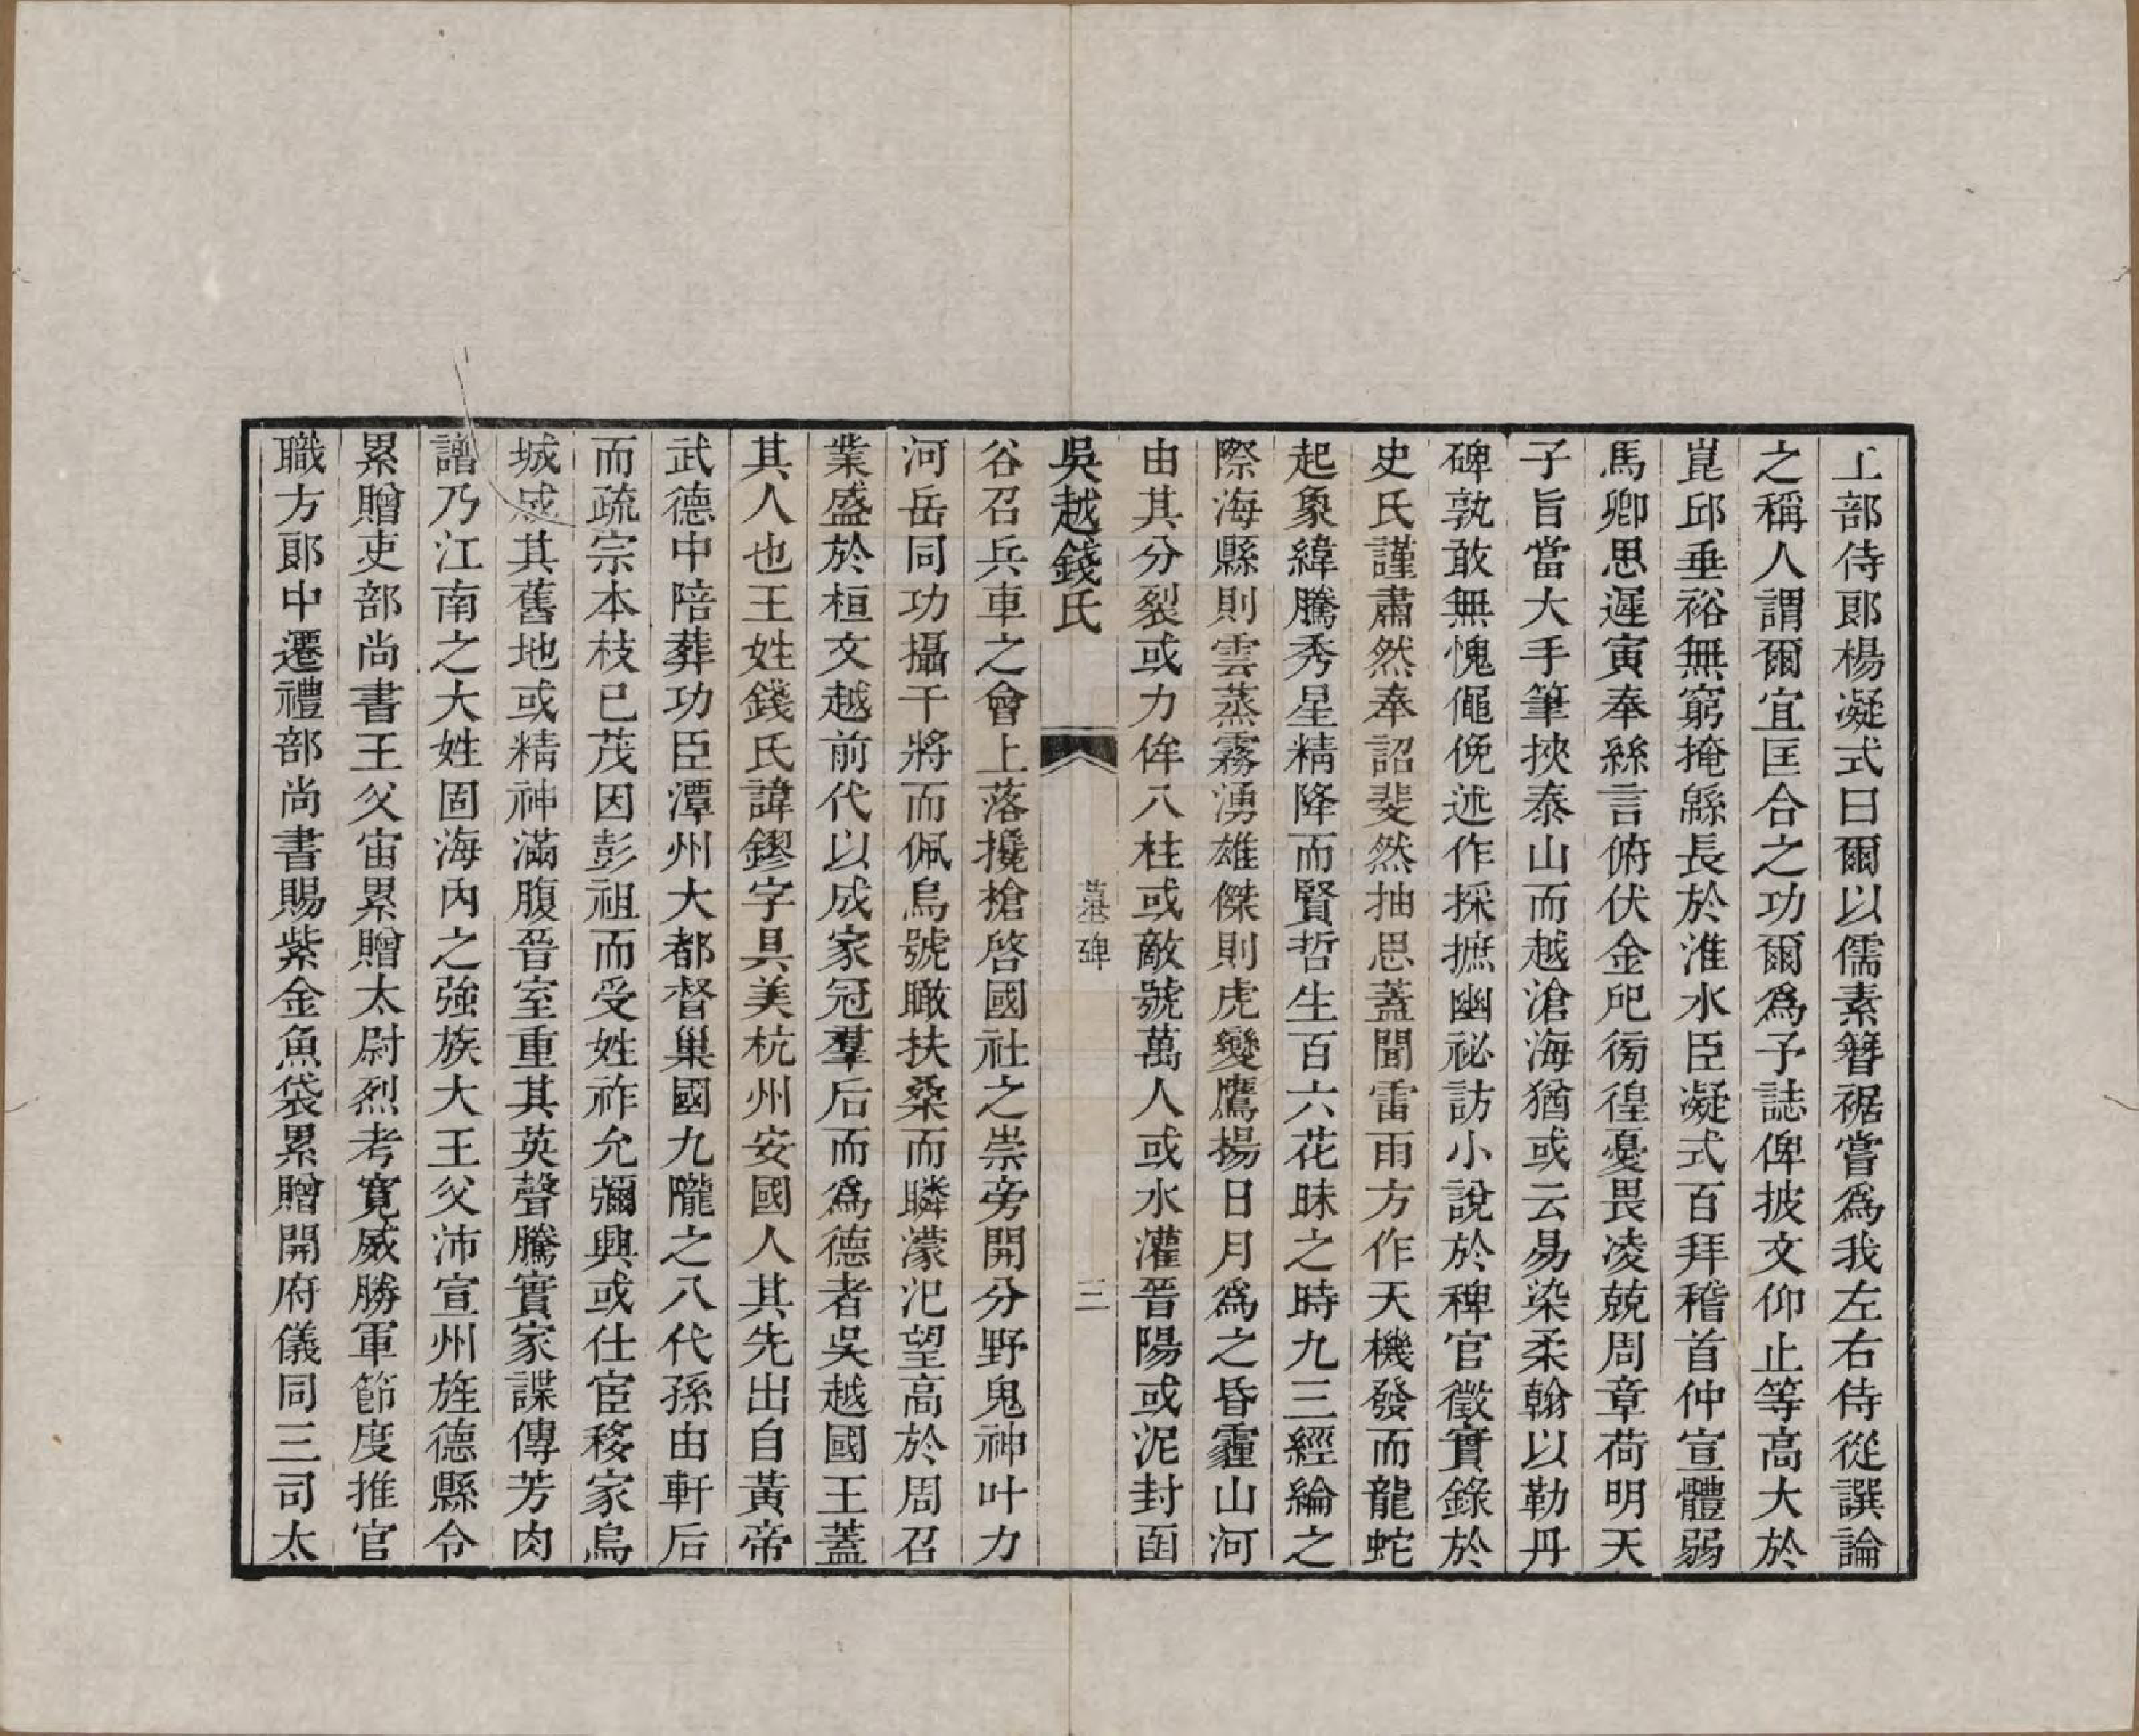 工部侍郎楊凝式曰爾以儒素簪裾嘗爲我左右侍從譔論
之稱人謂爾宜匡合之功爾爲予誌俾披文仰止等高大於
崑邱垂裕無窮掩緜長於淮水臣凝式百拜稽首仲宣體弱
馬卿思遲寅奉絲言俯伏金戺徬徨憂畏凌兢周章荷明天
子旨當大手筆挾泰山而越滄海猶或云易染柔翰以勒丹
碑孰敢無愧僶俛述作採摭幽祕訪小說於稗官徵實錄於
史氏謹肅然奉詔斐然抽思蓋聞雷雨方作天機發而龍蛇
起象緯騰秀星精降而賢哲生百六花昧之時九三經綸之
際海縣則雲蒸霧湧雄傑則虎變鷹揚日月爲之昏霾山河
由其分裂或力侔八柱或敵號萬人或水灌晉陽或泥封函
吳越錢氏 墓碑 三
谷召兵車之會上落攙槍啓國社之崇旁開分野鬼神叶力
河岳同功攝干將而佩烏號瞰扶桑而瞵濛汜望高於周召
業盛於桓文越前代以成家冠羣后而爲德者吳越國王蓋
其人也王姓錢氏諱鏐字具美杭州安國人其先出自黃帝
武德中陪葬功臣潭州大都督巢國九隴之八代孫由軒后
而疏宗本枝已茂因彭祖而受姓祚允彌興或仕宦移家烏
城成其舊地或精神滿腹晉室重其英聲騰實家諜傳芳肉
譜乃江南之大姓固海內之強族大王父沛宣州旌德縣令
累贈吏部尚書王父宙累贈太尉烈考寬威勝軍節度推官
職方郎中遷禮部尚書賜紫金魚袋累贈開府儀同三司太